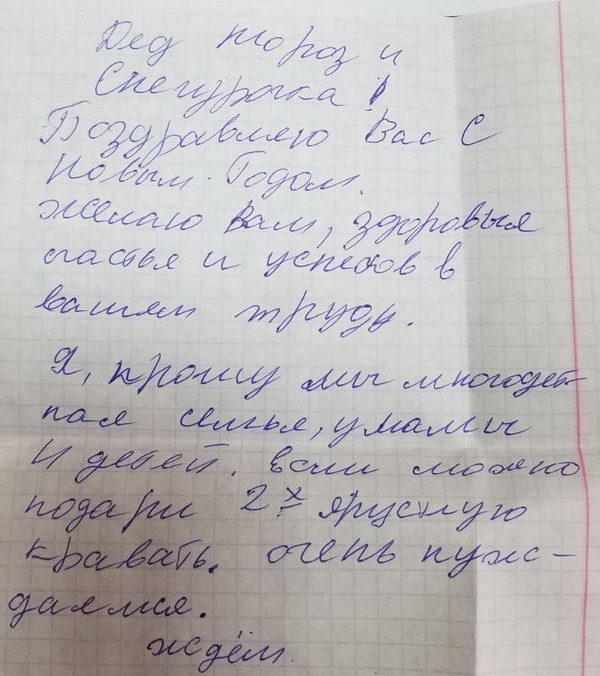 Дед Мороз и
Снегурочка!
Поздравляю Вас с
Новым Годом.
желаю Вам, здоровья
счастья и успехов в
вашем труду.
Я, прошу мы многодет-
ная семья, у мамы
4 детей. если можно
подари 2х ярусную
кравать. очень нуж-
даемся.
ждём.